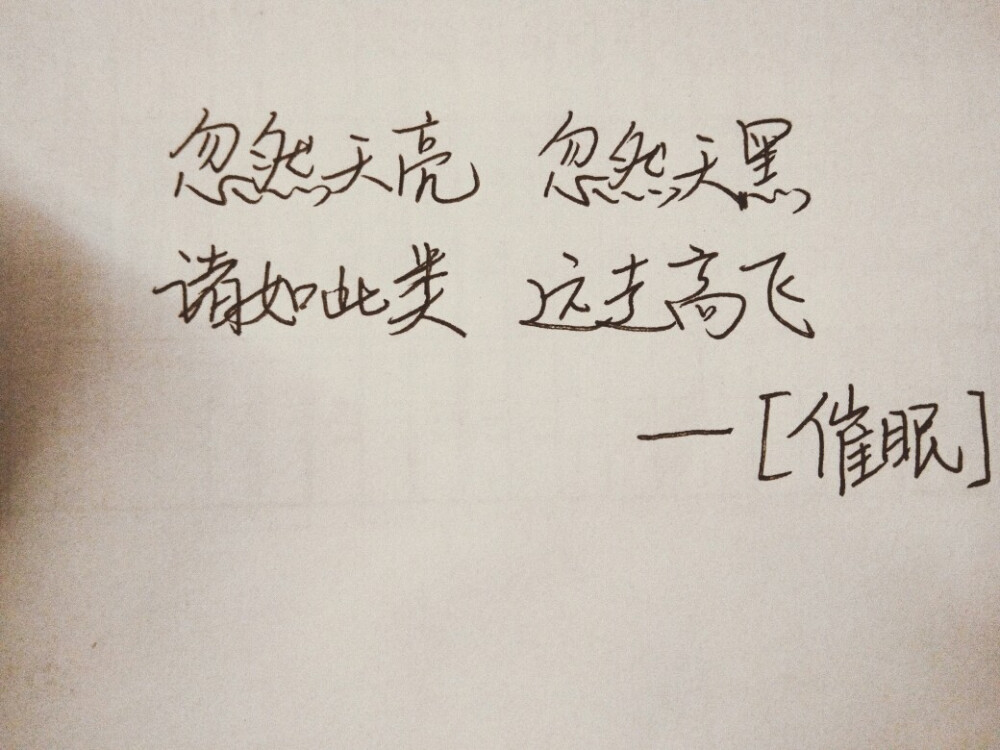 忽然天亮 忽然天黑
诸如此类 远走高飞
—[催眠]